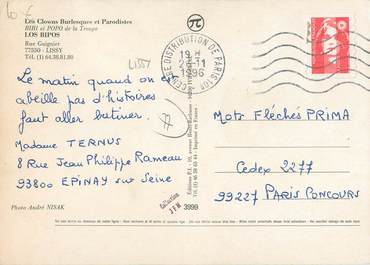 10 €
Les Clowns Burlesques et Parodistes
BIBI et POPO de la Troupe
LOS RIPOS
Rue Guignier
77550 - LISSY
Tél. (1) 64.38.81.80
LISSY
77
Le matin quand on est
abeille pas d'histoires
faut aller butiner.
Madame TERNUS
8 Rue Jean Philippe Rameau
93800 EPINAY sur Seine
Photo André NISAK
CENTRE DISTRIBUTION DE PARIS
19 H
-11
1996
3999
Mots Fléchés PRIMA
Cedex 2277
99227 PARIS CONCOURS